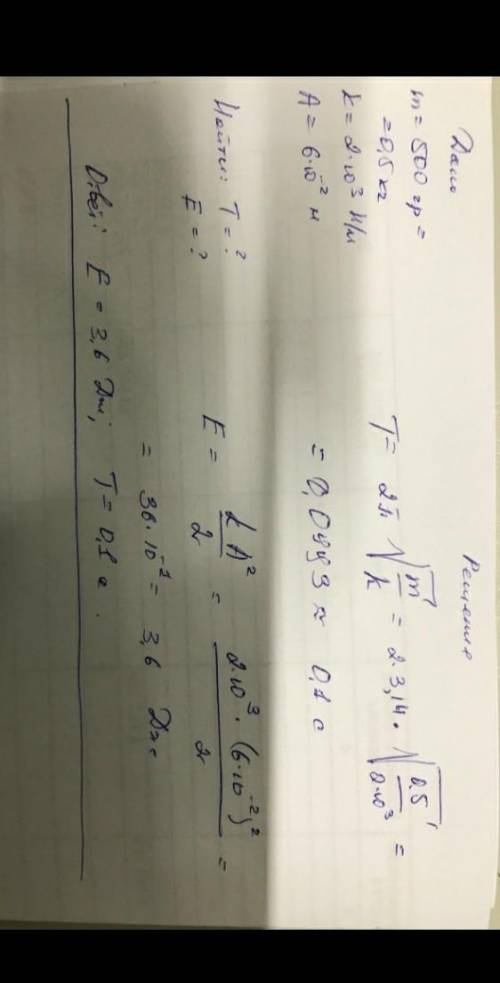 Дано
m = 500 гр =
= 0,5 кг
k = 2·10³ Н/м
A = 6·10⁻² м
Найти: T = ?
E = ?
Решение
T = 2π √(m/k) = 2·3,14· √(0,5/(2·10³)) =
= 0,0993 ≈ 0,1 с
E = kA²/2 = 2·10³·(6·10⁻²)²/2 =
= 36·10⁻¹ = 3,6 Дж
Ответ: E = 3,6 Дж; T = 0,1 с.